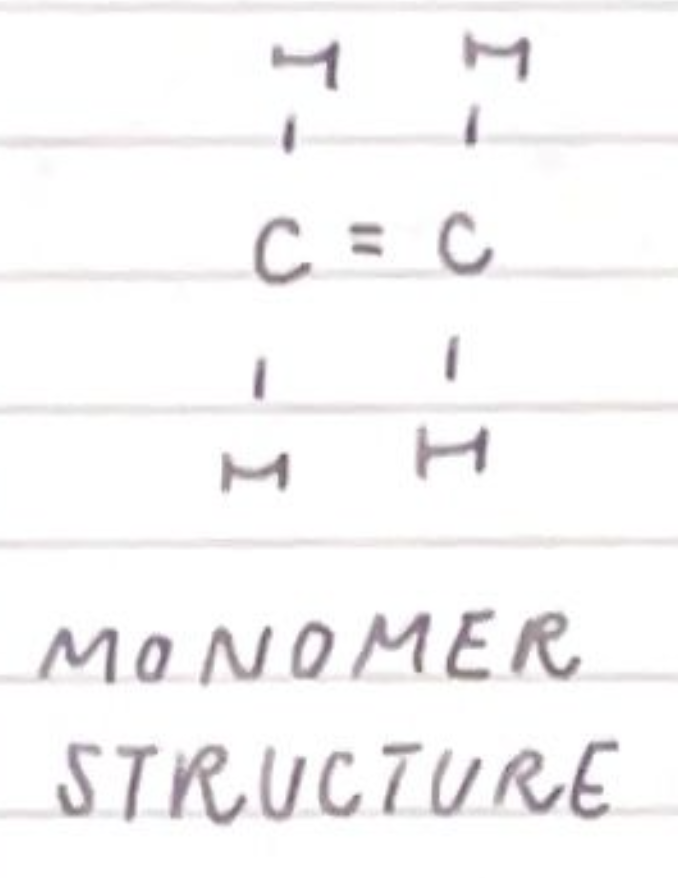 H H
C = C
H H
MONOMER
STRUCTURE